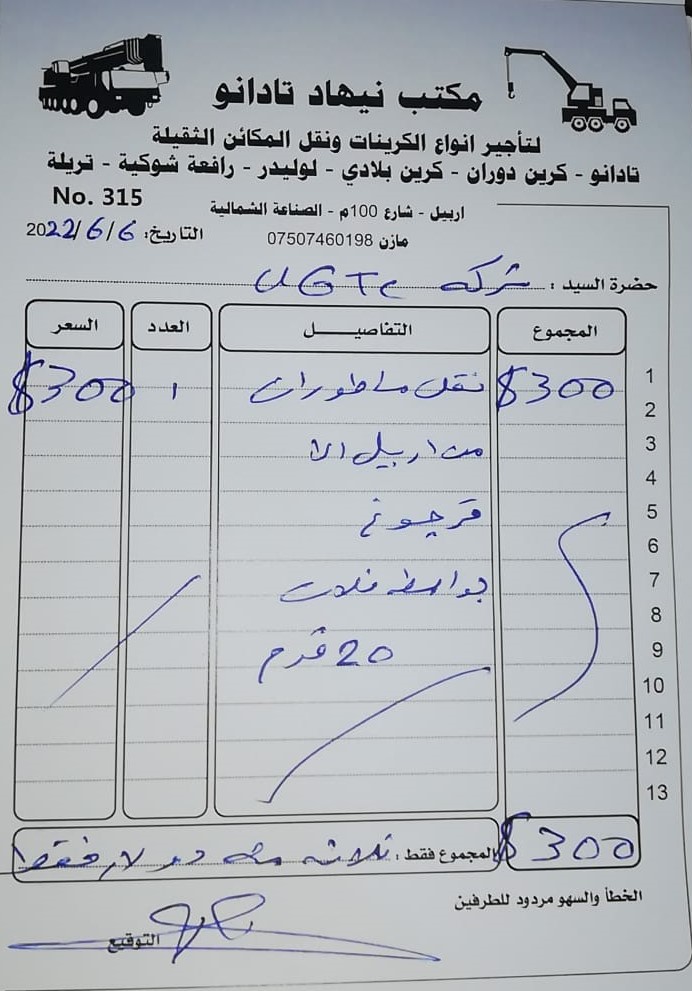 مكتب نيهاد تادانو
لتأجير انواع الكرينات ونقل المكائن الثقيلة
تادانو - كرين دوران - كرين بلادي - لوليدر - رافعة شوكية - تريلة
No. 315
اربيل - شارع 100م - الصناعة الشمالية
التاريخ: 2022/6/6
مازن 07507460198
حضرة السيد : شركه UGTC
المجموع التفاصيـــل العدد السعر
1 $300 نقل ماطورات ١ $300
2
3 من اربيل الا
4
5 قرچوغ
6
7 بواسطه فلات
8
9 20 قدم
10
11
12
13
$300 المجموع فقط : ثلاثه مئه دولار فقط
الخطأ والسهو مردود للطرفين
التوقيع